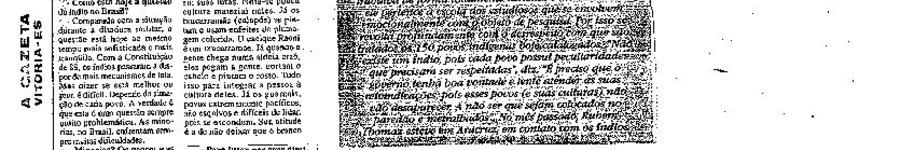 A GAZETA
VITORIA-ES
Como está hoje a questão
do índio no Brasil?
Comparada com a situação
durante a ditadura militar, a
questão está hoje ao mesmo
tempo mais sofisticada e mais
tranquila. Com a Constituição
de 88, os índios passaram a dis-
por de mais mecanismos de luta.
Mas dizer se está melhor ou
pior, é difícil. Depende da situa-
ção de cada povo. A verdade é
que esta é uma questão sempre
muito problemática. As mino-
rias, no Brasil, enfrentam sem-
pre muitas dificuldades.
em suas lutas. Nota-se pouca
cultura material neles. Já os
txucarramãe (caiapós) se pin-
tam e usam enfeites de pluma-
gem colorida. O cacique Raoni
é um txucarramãe. Já quando a
gente chega numa aldeia
eles pegam a gente, cortam o
cabelo e pintam o rosto. Tudo
isso para integrar a pessoa à
cultura deles. Já os guaranis,
povos extremamente pacíficos,
são esquivos e difíceis de lidar,
pois se escondem. Sua atitude
é a de não deixar que o branco
estudiosos que se envolvem
emocionalmente com o objeto de pesquisa. Por isso se
revolta profundamente com o desrespeito com que são
tratados os 150 povos indígenas hoje catalogados. "Não
existe um índio, pois cada povo possui peculiaridades
que precisam ser respeitadas", diz. "É preciso que o
governo tenha boa vontade e tente atender às suas
reivindicações, pois esses povos (e suas culturas) não
vão desaparecer. A não ser que sejam colocados no
paredão e metralhados". No mês passado, Rubem
Thomaz esteve em Aracruz, em contato com os índios